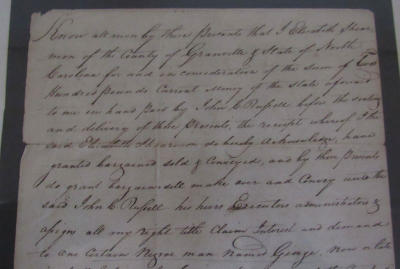 Know all men by these Presents that I Elizabeth Shear
mon of the County of Granville & State of North
Carolina for and in consideration of the sum of two
Hundred pounds Current Money of the state aforesaid
to me in hand paid by John C Russell before the sealing
and delivery of these Presents, the receipt whereof I the
said Elizabeth Shearmon do hereby acknowledge, have
granted bargained sold & Conveyed, and by these Presents
do grant bargain sell make over and Convey unto the
said John C Russell his heirs Executors administrators &
assigns all my right title Claim Interest and demand
to one Certain Negroe man named George, now in